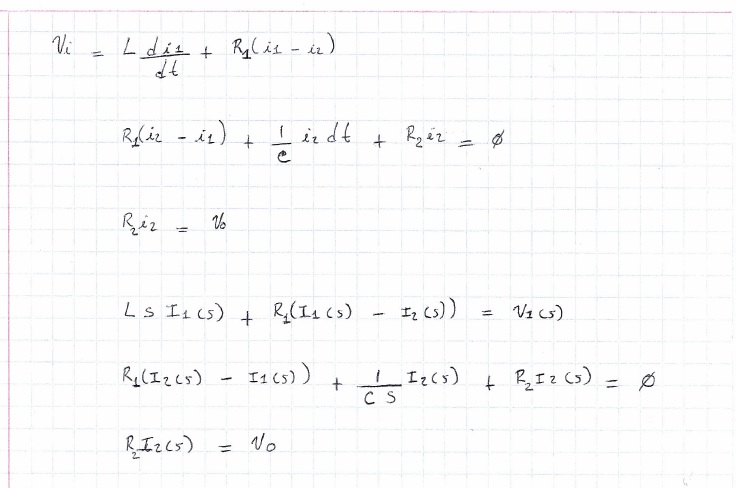 Vi = L di1/dt + R1(i1 - i2)
R1(i2 - i1) + 1/C i2 dt + R2 i2 = ø
R2 i2 = Vo
L S I1(s) + R1(I1(s) - I2(s)) = V1(s)
R1(I2(s) - I1(s)) + 1/CS I2(s) + R2 I2(s) = ø
R2 I2(s) = Vo